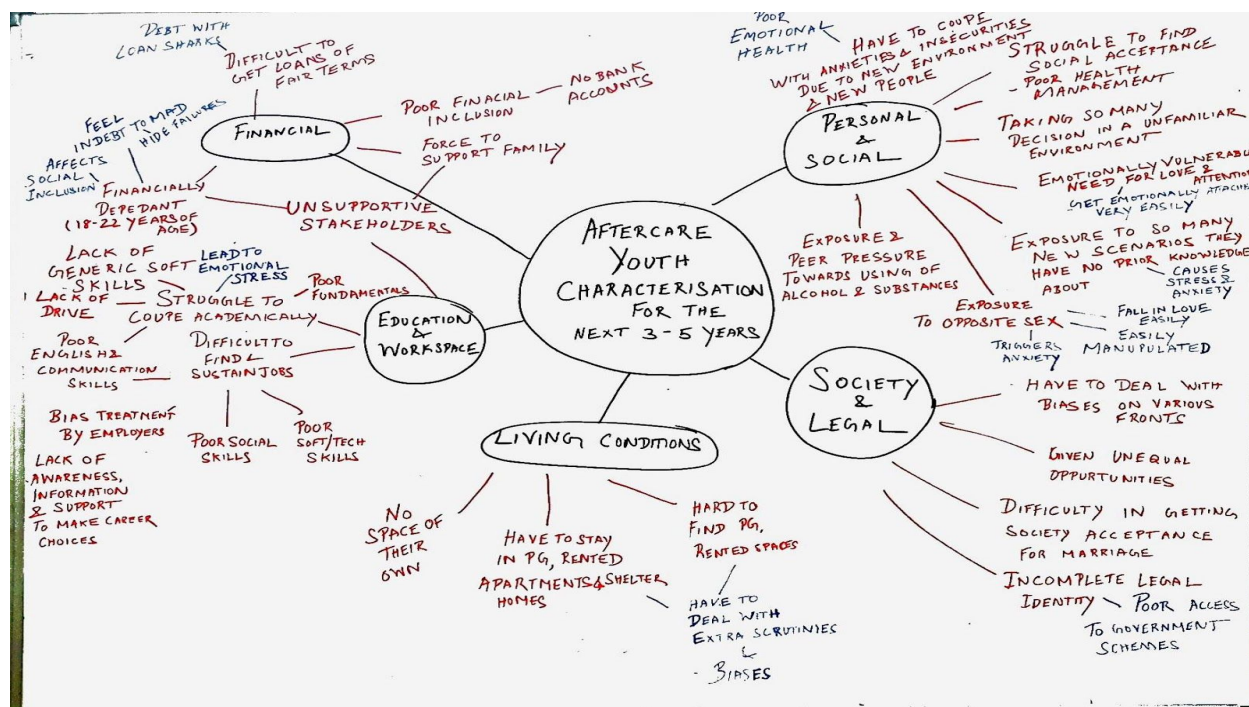 DEBT WITH
LOAN SHARKS
DIFFICULT TO
GET LOANS OF
FAIR TERMS
FINANCIAL
POOR FINACIAL
INCLUSION
NO BANK
ACCOUNTS
FORCE TO
SUPPORT FAMILY
FEEL
INDEBT TO MAD
HIDE FAILURES
AFFECTS
SOCIAL
INCLUSION
FINANCIALLY
DEPEDANT
(18-22 YEARS OF
AGE)
UNSUPPORTIVE
STAKEHOLDERS
LACK OF
GENERIC SOFT
SKILLS
LEAD TO
EMOTIONAL
STRESS
LACK OF
DRIVE
STRUGGLE TO
COUPE ACADEMICALLY
POOR
FUNDAMENTALS
EDUCATION
&
WORKSPACE
POOR
ENGLISH &
COMMUNICATION
SKILLS
DIFFICULT TO
FIND &
SUSTAIN JOBS
BIAS TREATMENT
BY EMPLOYERS
POOR SOCIAL
SKILLS
POOR
SOFT/TECH
SKILLS
LACK OF
AWARENESS,
INFORMATION
& SUPPORT
TO MAKE CAREER
CHOICES
AFTERCARE
YOUTH
CHARACTERISATION
FOR THE
NEXT 3-5 YEARS
LIVING CONDITIONS
NO
SPACE OF
THEIR
OWN
HAVE TO STAY
IN PG, RENTED
APARTMENTS & SHELTER
HOMES
HARD TO
FIND PG,
RENTED SPACES
HAVE TO
DEAL WITH
EXTRA SCRUTINIES
BIASES
POOR
EMOTIONAL
HEALTH
HAVE TO COUPE
WITH ANXIETIES & INSECURITIES
DUE TO NEW ENVIRONMENT
& NEW PEOPLE
PERSONAL
&
SOCIAL
STRUGGLE TO FIND
SOCIAL ACCEPTANCE
- POOR HEALTH
MANAGEMENT
TAKING SO MANY
DECISION IN A UNFAMILIAR
ENVIRONMENT
EMOTIONALLY VULNERABLE
NEED FOR LOVE &
ATTENTION
GET EMOTIONALLY ATTACHED
VERY EASILY
EXPOSURE TO SO MANY
NEW SCENARIOS THEY
HAVE NO PRIOR KNOWLEDGE
ABOUT
CAUSES
STRESS &
ANXIETY
EXPOSURE &
PEER PRESSURE
TOWARDS USING OF
ALCOHOL & SUBSTANCES
EXPOSURE
TO OPPOSITE SEX
FALL IN LOVE
EASILY
EASILY
MANUPULATED
TRIGGERS
ANXIETY
SOCIETY
&
LEGAL
HAVE TO DEAL WITH
BIASES ON VARIOUS
FRONTS
GIVEN UNEQUAL
OPPURTUNITIES
DIFFICULTY IN GETTING
SOCIETY ACCEPTANCE
FOR MARRIAGE
INCOMPLETE LEGAL
IDENTITY
POOR ACCESS
TO GOVERNMENT
SCHEMES